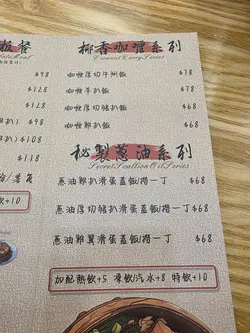 板餐
$98
$98
$118
$118
$118
飲+10
椰香咖喱系列
Coconut Curry Series
咖喱厚切牛脷飯 $78
咖喱羊扒飯 $78
咖喱厚切豬扒飯 $68
咖喱雞扒飯 $68
秘製蔥油系列
Secret Scallion Oil Series
蔥油雞扒滑蛋蓋飯/撈一丁 $68
蔥油厚切豬扒滑蛋蓋飯/撈一丁 $68
蔥油雞翼滑蛋蓋飯/撈一丁 $68
加配熱飲+5 凍飲/汽水+8 特飲+10